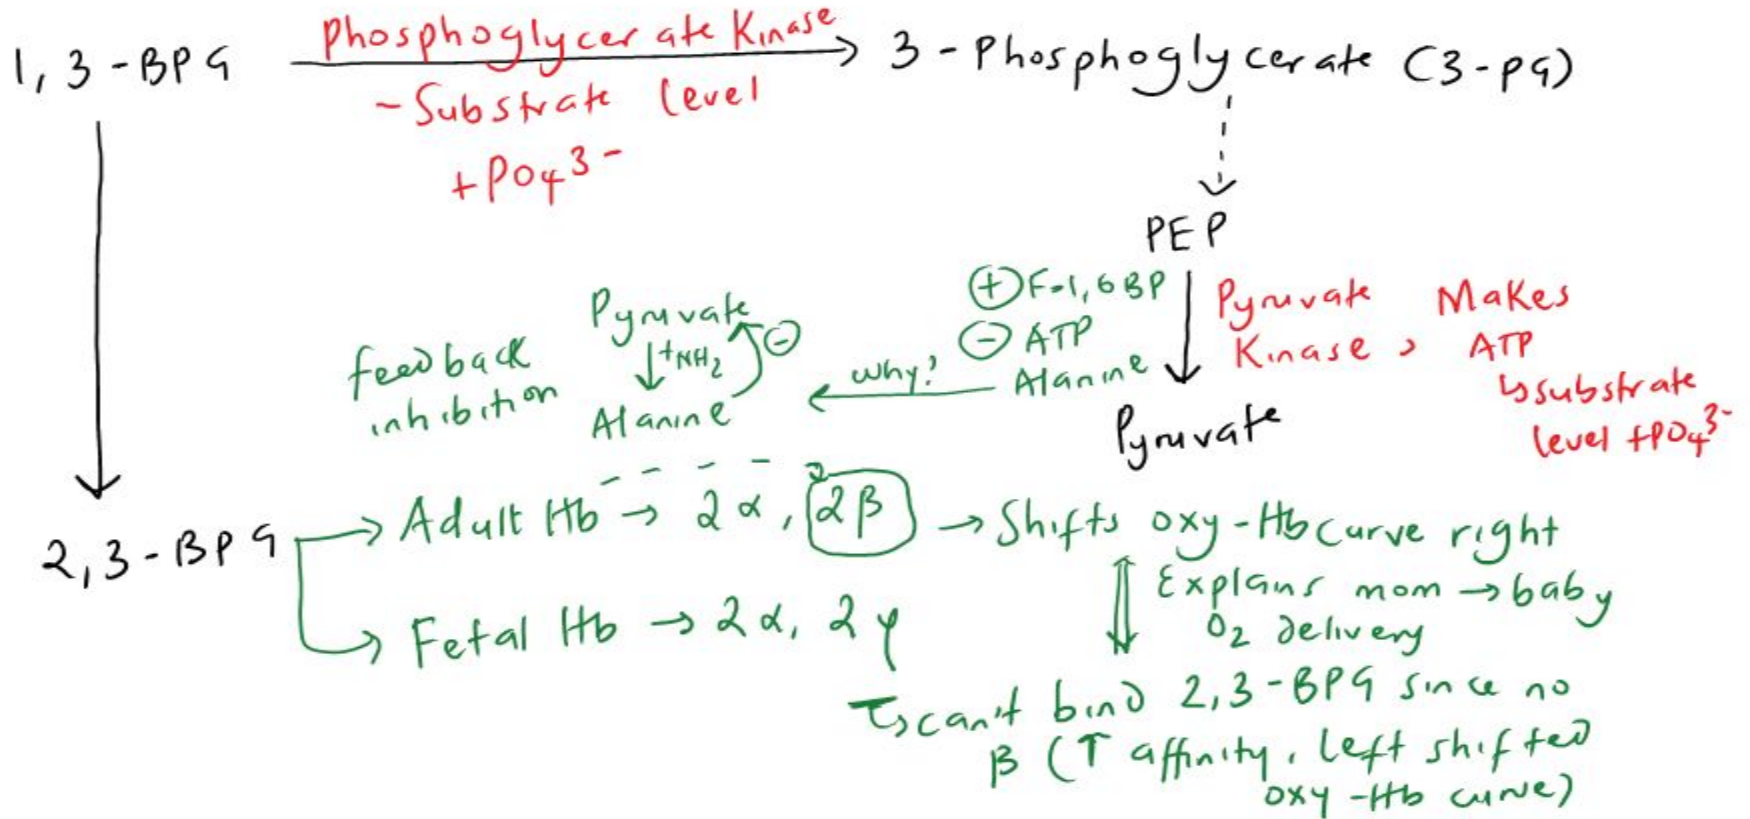 1,3-BPG
Phosphoglycerate Kinase
3-Phosphoglycerate (3-PG)
-Substrate level
+PO4 3-
PEP
+ F-1,6BP
- ATP
Alanine
Pyruvate Makes
Kinase, ATP
↳substrate
level +PO4 3-
Pyruvate
why?
Pyruvate
↓+NH2
Alanine
-
feedback
inhibition
2,3-BPG
→ Adult Hb → 2α, 2β → Shifts oxy-Hb curve right
Explains mom → baby
O2 delivery
→ Fetal Hb → 2α, 2γ
↳can't bind 2,3-BPG since no
β (↑ affinity, left shifted
oxy-Hb curve)